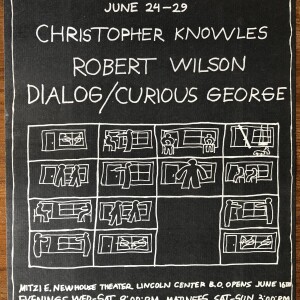 JUNE 24-29
CHRISTOPHER KNOWLES
ROBERT WILSON
DIALOG/CURIOUS GEORGE
MITZI E. NEWHOUSE THEATER LINCOLN CENTER B.O. OPENS JUNE 16TH
EVENINGS WED-SAT 8:00 P.M. MATINEES SAT-SUN 3:00 P.M.